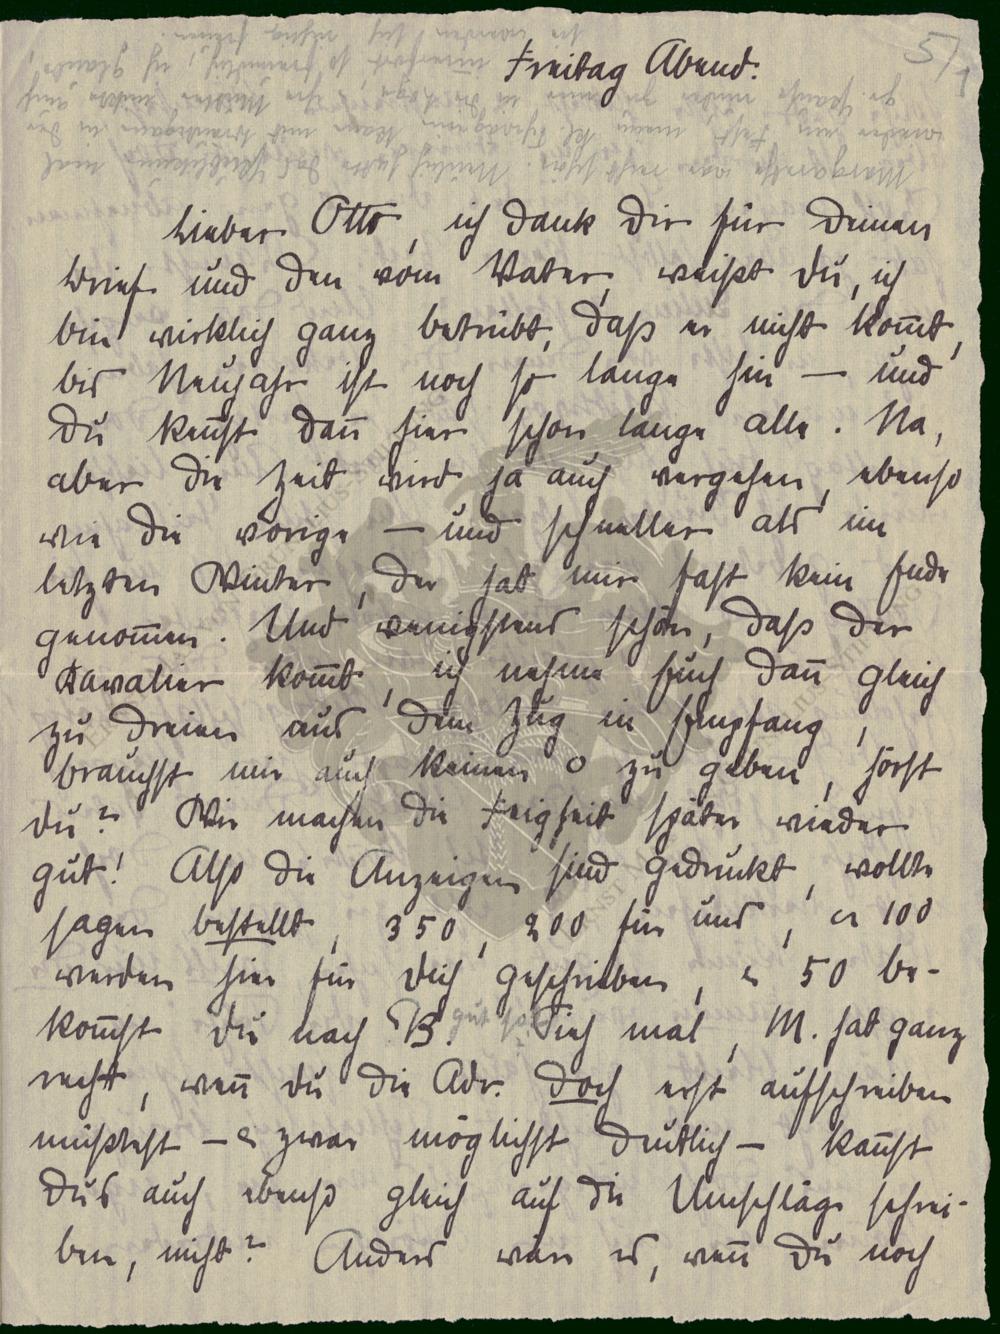 5/1
Freitag Abend.
Lieber Otto, ich dank Dir für Deinen
Brief und den vom Vater, weißt Du, ich
bin wirklich ganz betrübt, daß er nicht kom̄t,
bis Neujahr ist noch so lange hin — und
Du ken̄st dan̄ hier schon lange alle. Na,
aber die Zeit wird ja auch vergehen, ebenso
wie die vorige — und schneller als im
letzten Winter, der hat mir fast kein Ende
genom̄en. Und wenigstens schön, daß der
Kavalier kom̄t, ich nehme Euch dan̄ gleich
zu dreien aus dem Zug in Empfang,
brauchst mir auch keinen o zu geben, hörst
Du? Wir machen die Feigheit später wieder
gut! Also die Anzeigen sind gedruckt, wollte
sagen bestellt, 350, 200 für uns, u 100
werden hier für Dich geschrieben, u 50 be-
kom̄st Du nach B. gut so? Sieh mal, M. hat ganz
recht, wen̄ Du die Adr. doch erst aufschreiben
müßtest — u zwar möglichst deutlich — kan̄st
Dus auch ebenso gleich auf die Umschläge schrei-
ben, nicht? Anders wär es, wen̄ Du noch
Margarethe war recht schön. Neulich hatte das